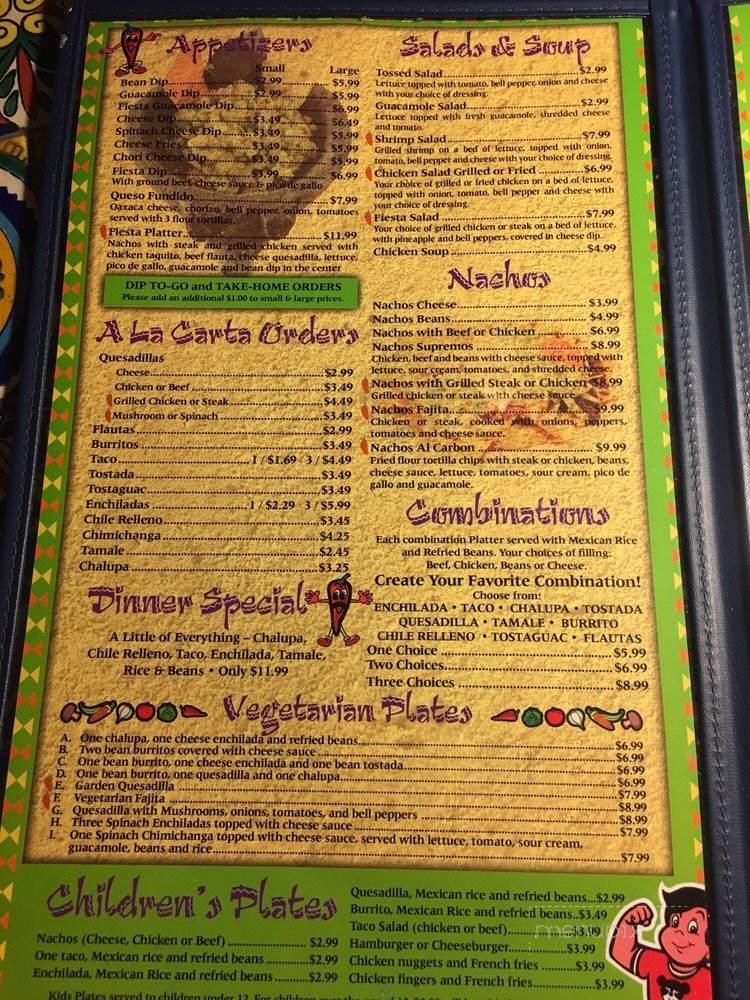 Appetizers
Small Large
Bean Dip $2.99 $5.99
Guacamole Dip $2.99 $5.99
Fiesta Guacamole Dip $6.99
Cheese Dip $3.49 $6.49
Spinach Cheese Dip $3.49 $5.99
Cheese Fries $3.49 $5.99
Chori Cheese Dip $3.49 $5.99
Fiesta Dip $6.99
With ground beef, cheese sauce & pico de gallo
Queso Fundido $7.99
Oaxaca cheese, chorizo, bell pepper, onion, tomatoes
served with 3 flour tortillas.
Fiesta Platter $11.99
Nachos with steak and grilled chicken served with
chicken taquito, beef flauta, cheese quesadilla, lettuce,
pico de gallo, guacamole and bean dip in the center
DIP TO-GO and TAKE-HOME ORDERS
Please add an additional $1.00 to small & large prices.
A La Carta Orders
Quesadillas
Cheese $2.99
Chicken or Beef $3.49
Grilled Chicken or Steak $4.49
Mushroom or Spinach $3.49
Flautas $2.99
Burritos $3.49
Taco 1 / $1.69 3 / $4.49
Tostada $3.49
Tostaguac $3.49
Enchiladas 1 / $2.29 3 / $5.99
Chile Relleno $3.45
Chimichanga $4.25
Tamale $2.45
Chalupa $3.25
Dinner Special
A Little of Everything – Chalupa,
Chile Relleno, Taco, Enchilada, Tamale,
Rice & Beans • Only $11.99
Salads & Soup
Tossed Salad $2.99
Lettuce topped with tomato, bell pepper, onion and cheese
with your choice of dressing.
Guacamole Salad $2.99
Lettuce topped with fresh guacamole, shredded cheese
and tomato.
Shrimp Salad $7.99
Grilled shrimp on a bed of lettuce, topped with onion,
tomato, bell pepper and cheese with your choice of dressing.
Chicken Salad Grilled or Fried $6.99
Your choice of grilled or fried chicken on a bed of lettuce,
topped with onion, tomato, bell pepper and cheese with
your choice of dressing.
Fiesta Salad $7.99
Your choice of grilled chicken or steak on a bed of lettuce,
with pineapple and bell peppers, covered in cheese dip.
Chicken Soup $4.99
Nachos
Nachos Cheese $3.99
Nachos Beans $4.99
Nachos with Beef or Chicken $6.99
Nachos Supremos $8.99
Chicken, beef and beans with cheese sauce, topped with
lettuce, sour cream, tomatoes, and shredded cheese.
Nachos with Grilled Steak or Chicken $8.99
Grilled chicken or steak with cheese sauce
Nachos Fajita $9.99
Chicken or steak, cooked with onions, peppers,
tomatoes and cheese sauce.
Nachos Al Carbon $9.99
Fried flour tortilla chips with steak or chicken, beans,
cheese sauce, lettuce, tomatoes, sour cream, pico de
gallo and guacamole.
Combinations
Each combination Platter served with Mexican Rice
and Refried Beans. Your choices of filling:
Beef, Chicken, Beans or Cheese.
Create Your Favorite Combination!
Choose from:
ENCHILADA • TACO • CHALUPA • TOSTADA
QUESADILLA • TAMALE • BURRITO
CHILE RELLENO • TOSTAGUAC • FLAUTAS
One Choice $5.99
Two Choices $6.99
Three Choices $8.99
Vegetarian Plates
A. One chalupa, one cheese enchilada and refried beans $6.99
B. Two bean burritos covered with cheese sauce $6.99
C. One bean burrito, one cheese enchilada and one bean tostada $6.99
D. One bean burrito, one quesadilla and one chalupa $6.99
E. Garden Quesadilla $7.99
F. Vegetarian Fajita $8.99
G. Quesadilla with Mushrooms, onions, tomatoes, and bell peppers $8.99
H. Three Spinach Enchiladas topped with cheese sauce $7.99
I. One Spinach Chimichanga topped with cheese sauce, served with lettuce, tomato, sour cream,
guacamole, beans and rice $7.99
Children's Plates
Nachos (Cheese, Chicken or Beef) $2.99
One taco, Mexican rice and refried beans $2.99
Enchilada, Mexican Rice and refried beans $2.99
Quesadilla, Mexican rice and refried beans $2.99
Burrito, Mexican Rice and refried beans $3.49
Taco Salad (chicken or beef) $3.99
Hamburger or Cheeseburger $3.99
Chicken nuggets and French fries $3.99
Chicken fingers and French fries $3.99
Kids Plates served to children under 12. For children over